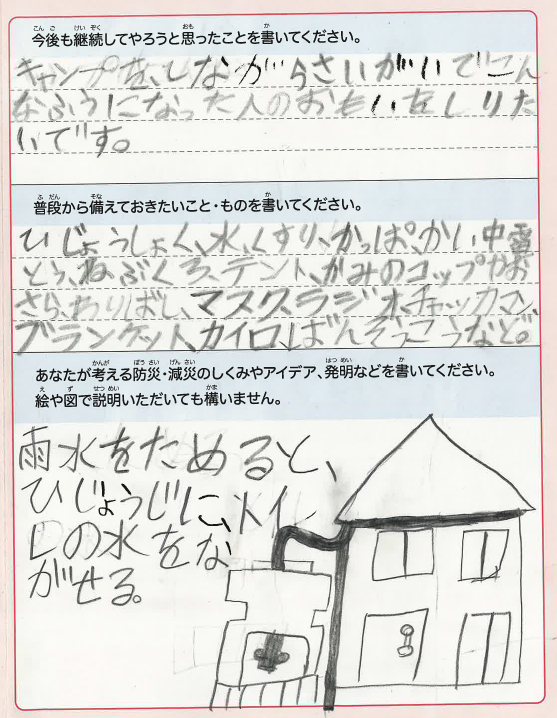 今後も継続してやろうと思ったことを書いてください。
キャンプを、しながらさいがいでこん
なふうになった人のおもいをしりた
いです。
普段から備えておきたいこと・ものを書いてください。
ひじょうしょく、水、くすり、かっぱ、かい中電
とう、ねぶくろ、テント、かみのコップやお
さら、わりばし、マスク、ラジオ、チャッカマン、
ブランケット、カイロ、ばんそうこうなど。
あなたが考える防災・減災のしくみやアイデア、発明などを書いてください。
絵や図で説明いただいても構いません。
雨水をためると、
ひじょうじに、トイレ
の水をな
がせる。